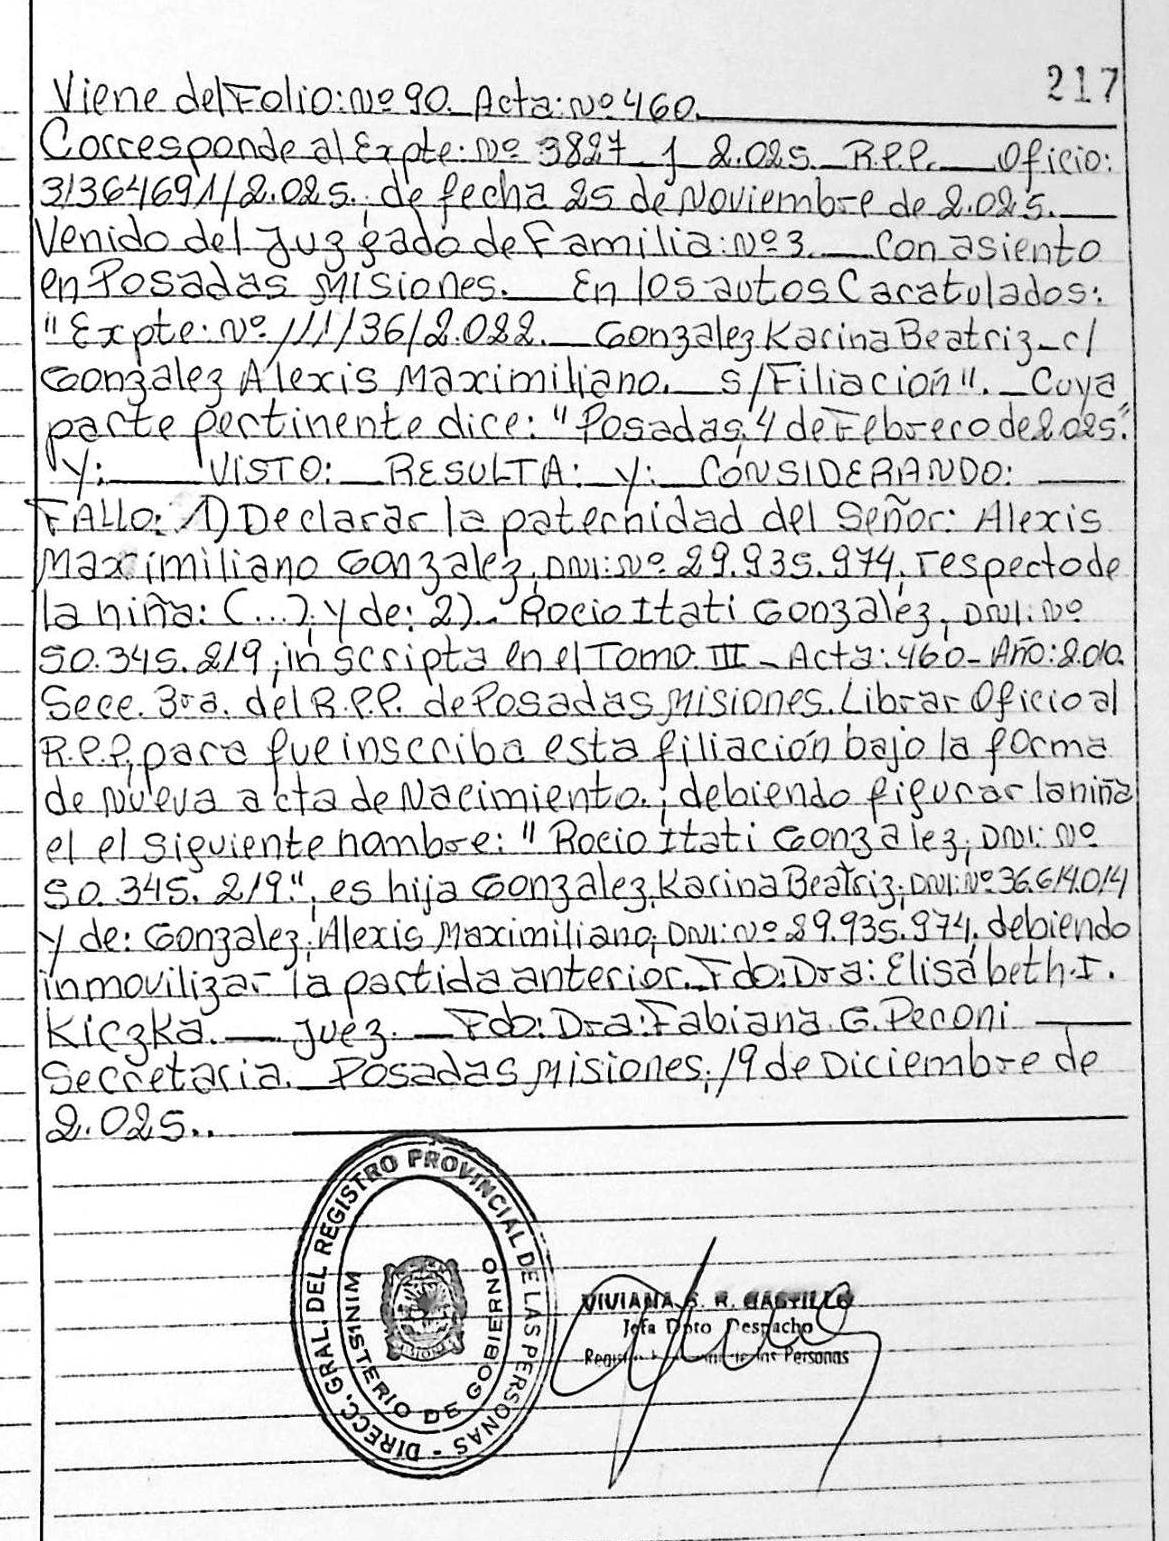 217
Viene del Folio: Nº 90. Acta: Nº 460.
Corresponde al Expte: Nº 3827 / 2.025. R.P.P. Oficio:
31364691/2.025., de fecha 25 de Noviembre de 2.025.
Venido del Juzgado de Familia: Nº 3. Con asiento
en Posadas Misiones. En los autos Caratulados:
"Expte: Nº 111136/2.022. Gonzalez Karina Beatriz - c/
Gonzalez Alexis Maximiliano. s/Filiación". Cuya
parte pertinente dice: "Posadas, 4 de Febrero de 2.025."
Y: VISTO: RESULTA: y: CONSIDERANDO:
FALLO: 1) Declarar la paternidad del Señor: Alexis
Maximiliano Gonzalez, DNI: Nº 29.935.974, respecto de
la niña: (...), y de: 2). Rocio Itati Gonzalez, DNI: Nº
50.345.219, inscripta en el Tomo III - Acta: 460 - Año: 2.010.
Secc. 3ra. del R.P.P. de Posadas Misiones. Librar Oficio al
R.P.P, para que inscriba esta filiación bajo la forma
de Nueva acta de Nacimiento., debiendo figurar la niña
el el siguiente nombre: "Rocio Itati Gonzalez, DNI: Nº
50.345.219.", es hija Gonzalez, Karina Beatriz, DNI: Nº 36.614.014
y de: Gonzalez, Alexis Maximiliano, DNI: Nº 29.935.974, debiendo
inmovilizar la partida anterior. Fdo: Dra: Elisabeth I.
Kiczka. Juez. Fdo: Dra: Fabiana G. Peroni
Secretaria. Posadas Misiones, 19 de Diciembre de
2.025..
DIRECC. GRAL. DEL REGISTRO PROVINCIAL DE LAS PERSONAS -
MINISTERIO DE GOBIERNO
VIVIANA S. R. CASTILLO
Jefa Dpto Despacho
las Personas